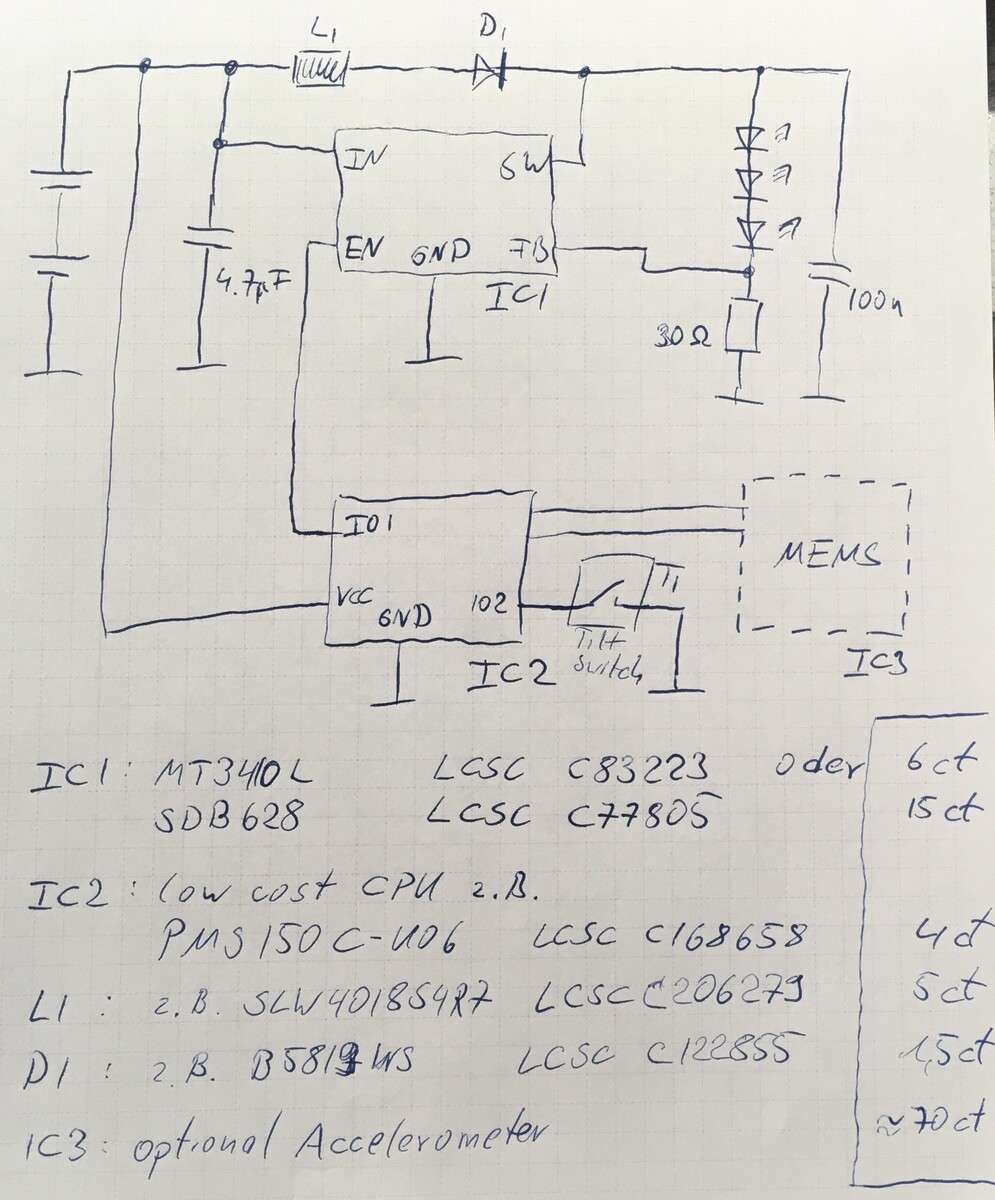 L1
D1
IN
SW
EN
GND
FB
IC1
4.7µF
30Ω
100n
IO1
VCC
GND
IO2
IC2
T1
Tilt
Switch
MEMS
IC3
IC1: MT3410L LCSC C83223 oder 6ct
SDB628 LCSC C77805 15ct
IC2: low cost CPU z.B.
PMS150C-U06 LCSC C168658 4ct
L1: z.B. SLW4018S4R7 LCSC C206279 5ct
D1: z.B. B5819WS LCSC C122855 1,5ct
IC3: optional Accelerometer ≈70ct